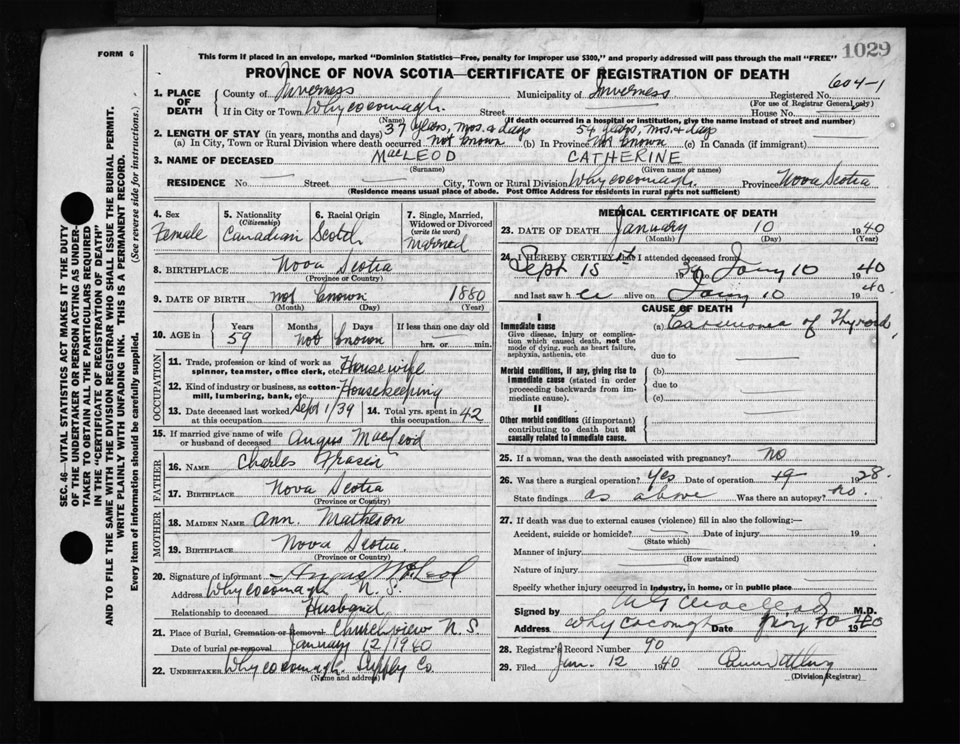 1029
FORM 6
This form if placed in an envelope, marked "Dominion Statistics—Free, penalty for improper use $300," and properly addressed will pass through the mail "FREE"
PROVINCE OF NOVA SCOTIA—CERTIFICATE OF REGISTRATION OF DEATH
604-1
1. PLACE OF DEATH County of Inverness Municipality of Inverness Registered No.
(For use of Registrar General only)
If in City or Town Whycocomagh. Street House No.
(Name) (If death occurred in a hospital or institution, give the name instead of street and number)
37 years, mos. & days 54 years, mos. & days
2. LENGTH OF STAY (in years, months and days)
(a) In City, Town or Rural Division where death occurred not known (b) In Province Not known (c) In Canada (if immigrant)
3. NAME OF DECEASED MacLEOD CATHERINE
(Surname) (Given name or names)
RESIDENCE No. Street City, Town or Rural Division Whycocomagh. Province Nova Scotia
(Residence means usual place of abode. Post Office Address for residents in rural parts not sufficient)
4. Sex
Female
5. Nationality
(Citizenship)
Canadian
6. Racial Origin
Scotch
7. Single, Married, Widowed or Divorced
(write the word)
Married
8. BIRTHPLACE Nova Scotia
(Province or Country)
9. DATE OF BIRTH not known 1880
(Month) (Day) (Year)
10. AGE in Years Months Days If less than one day old
59 not known hrs. or min.
OCCUPATION
11. Trade, profession or kind of work as spinner, teamster, office clerk, etc. Housewife
12. Kind of industry or business, as cotton-mill, lumbering, bank, etc. Housekeeping
13. Date deceased last worked at this occupation Sept 1/39
14. Total yrs. spent in this occupation 42
15. If married give name of wife or husband of deceased Angus MacLeod
FATHER
16. NAME Charles Fraser
17. BIRTHPLACE Nova Scotia
(Province or Country)
MOTHER
18. MAIDEN NAME Ann. Matheson
19. BIRTHPLACE Nova Scotia.
(Province or Country)
20. Signature of informant Angus McLeod
Address Whycocomagh N. S.
Relationship to deceased Husband
21. Place of Burial, Cremation or Removal Churchview N. S.
Date of burial or removal January 12/1940
22. UNDERTAKER Whycocomagh Supply Co
(Name and address)
MEDICAL CERTIFICATE OF DEATH
23. DATE OF DEATH January 10 1940
(Month) (Day) (Year)
24. I HEREBY CERTIFY that I attended deceased from
Sept 15 1939 to Jany 10 1940
and last saw h er alive on Jany 10 1940.
CAUSE OF DEATH
I
Immediate cause (a) Carcinoma of Thyroid
Give disease, injury or complication which caused death, not the mode of dying, such as heart failure, asphyxia, asthenia, etc
due to
Morbid conditions, if any, giving rise to immediate cause (stated in order proceeding backwards from immediate cause).
(b)
due to
(c)
II
Other morbid conditions (if important) contributing to death but not causally related to immediate cause.
25. If a woman, was the death associated with pregnancy? no
26. Was there a surgical operation? Yes Date of operation 1928.
State findings as above Was there an autopsy? no.
27. If death was due to external causes (violence) fill in also the following:—
Accident, suicide or homicide? Date of injury 19
(State which)
Manner of injury
(How sustained)
Nature of injury
Specify whether injury occurred in industry, in home, or in public place
Signed by M.D.
Address Whycocomagh Date Jany 10 1940
28. Registrar's Record Number 90
29. Filed Jan. 12 1940
(Division Registrar)
SEC. 46—VITAL STATISTICS ACT MAKES IT THE DUTY
OF THE UNDERTAKER OR PERSON ACTING AS UNDER-
TAKER TO OBTAIN ALL THE PARTICULARS REQUIRED
IN THE "CERTIFICATE OF REGISTRATION OF DEATH"
AND TO FILE THE SAME WITH THE DIVISION REGISTRAR WHO SHALL ISSUE THE BURIAL PERMIT.
WRITE PLAINLY WITH UNFADING INK. THIS IS A PERMANENT RECORD.
Every item of information should be carefully supplied. (See reverse side for instructions.)